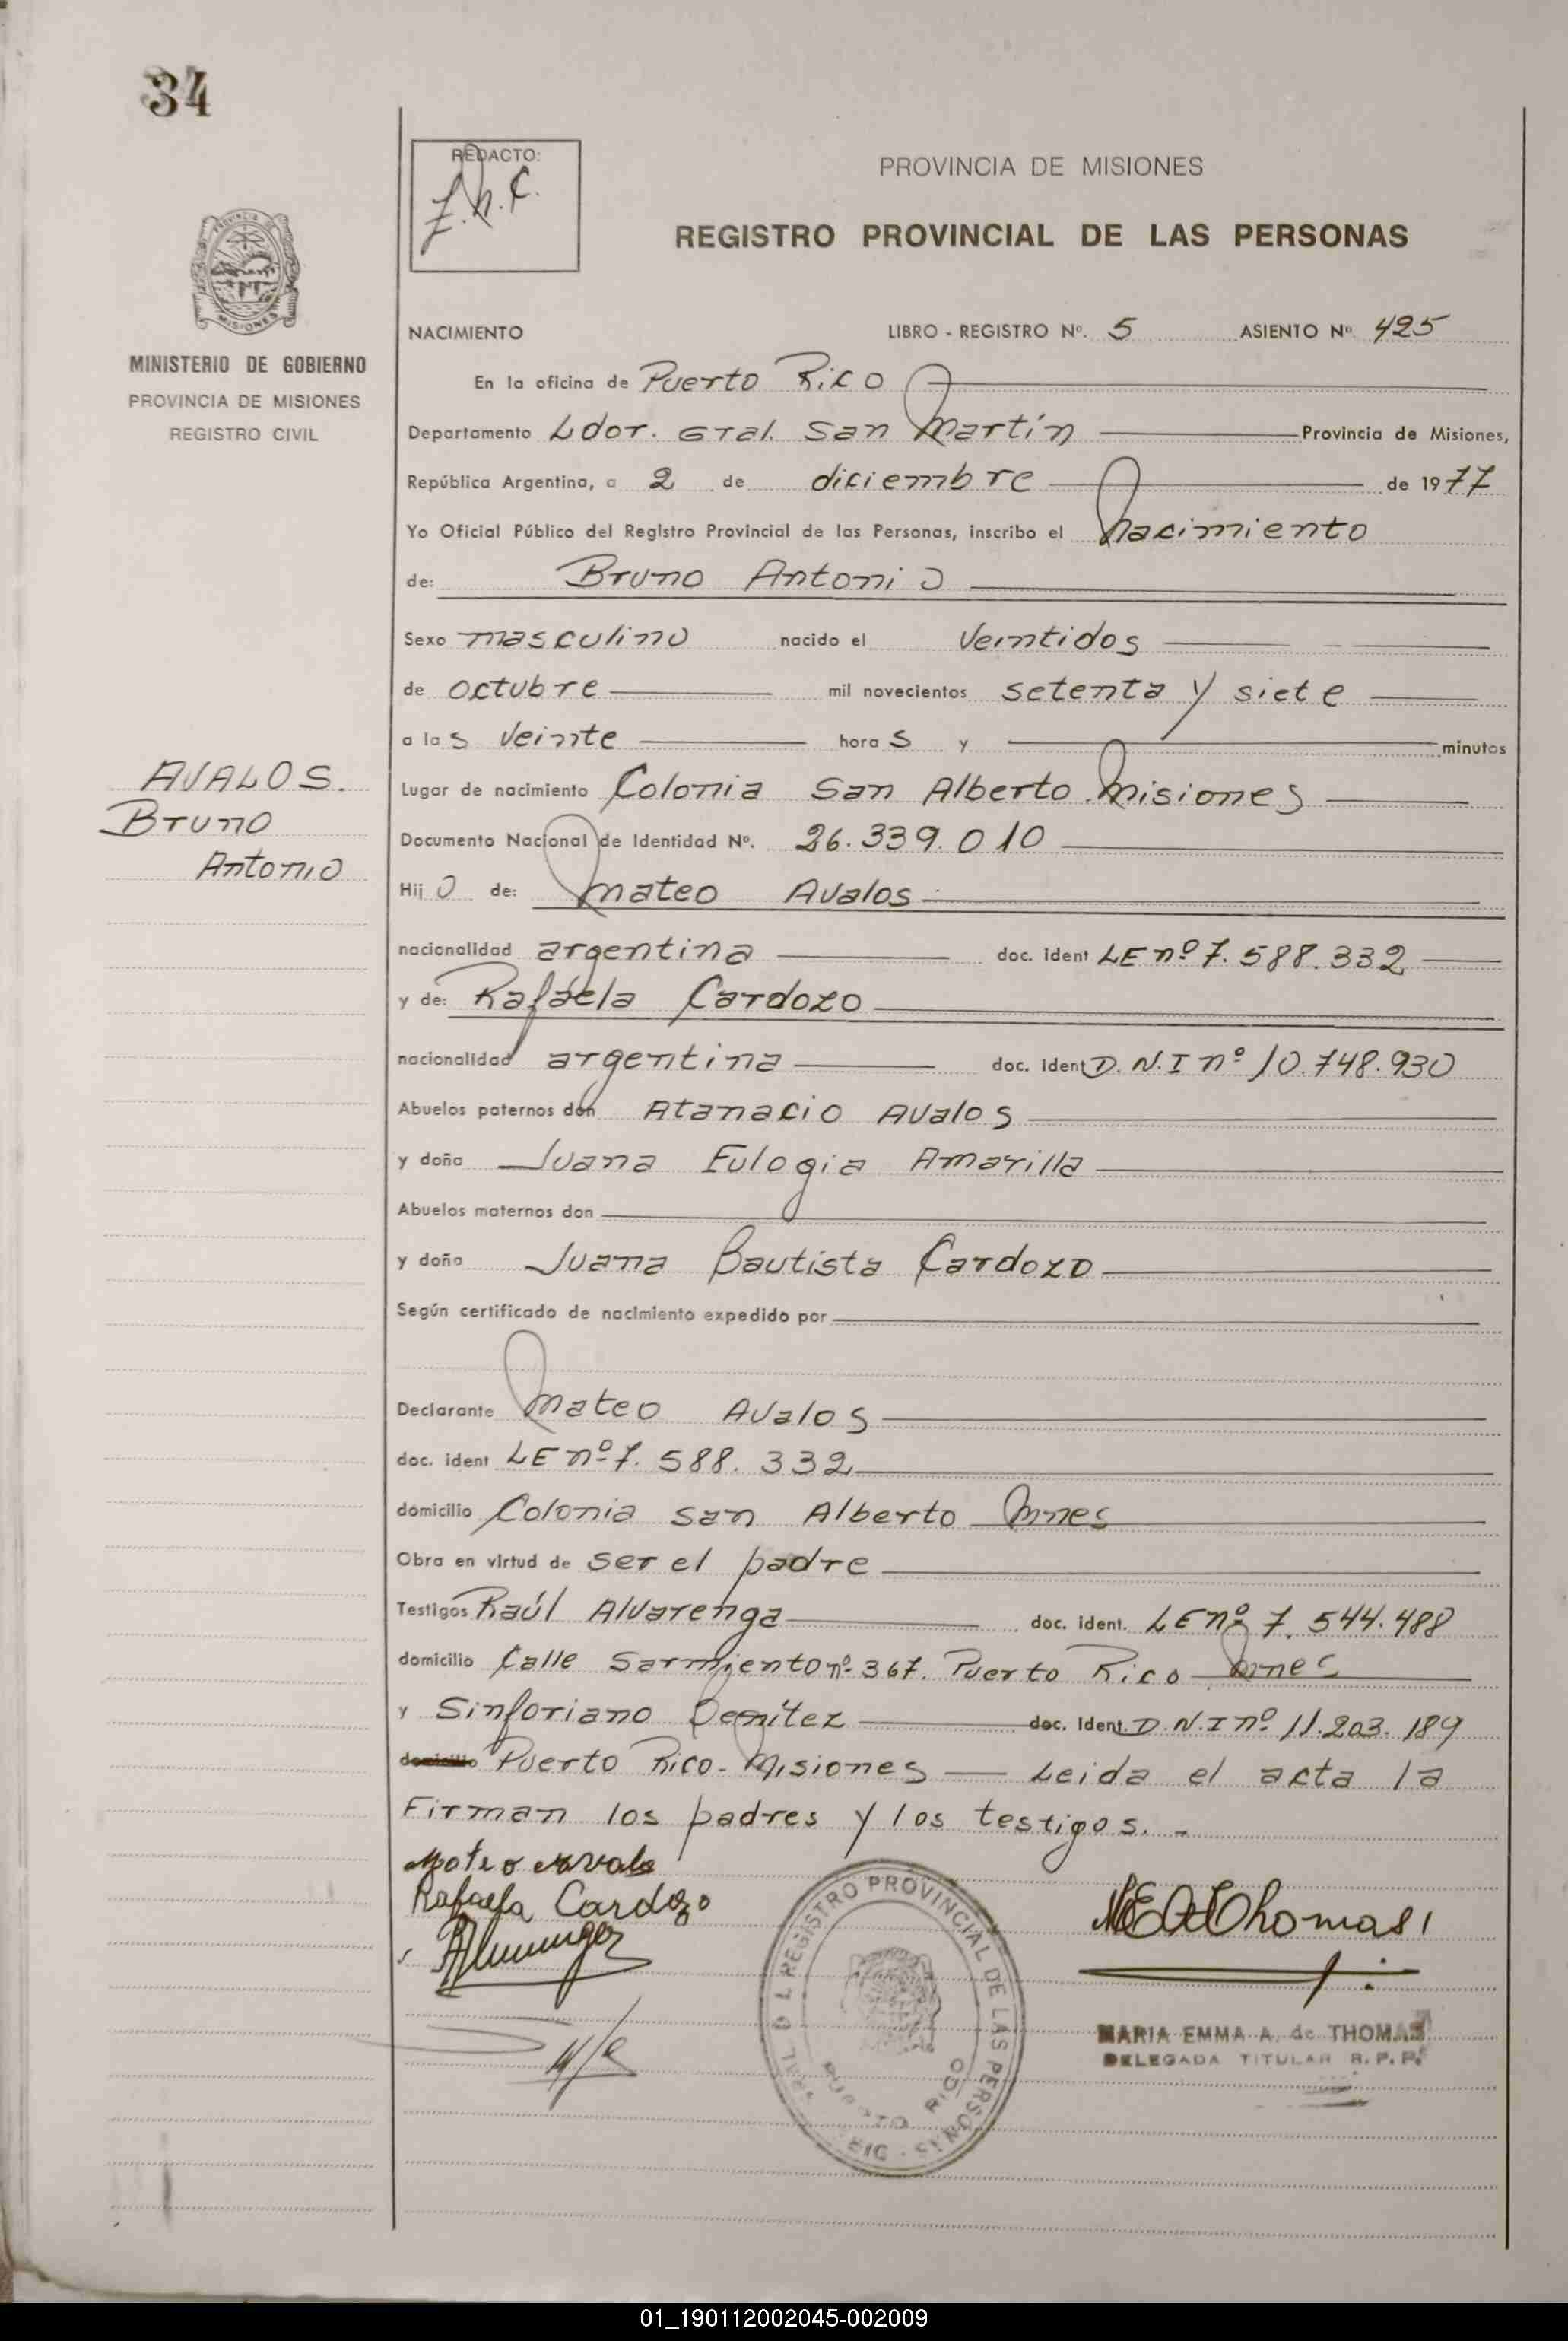 34
REDACTO:
PROVINCIA DE MISIONES
REGISTRO PROVINCIAL DE LAS PERSONAS
MISIONES
MINISTERIO DE GOBIERNO
PROVINCIA DE MISIONES
REGISTRO CIVIL
NACIMIENTO LIBRO - REGISTRO Nº. 5 ASIENTO Nº 425
En la oficina de Puerto Rico
Departamento Ldor. Gral. San Martín Provincia de Misiones,
República Argentina, a 2 de diciembre de 1977
Yo Oficial Público del Registro Provincial de las Personas, inscribo el nacimiento
de: Bruno Antonio
Sexo masculino nacido el veintidos
de octubre mil novecientos setenta y siete
a las veinte horas y minutos
AVALOS.
Bruno
Antonio
Lugar de nacimiento Colonia San Alberto Misiones
Documento Nacional de Identidad Nº. 26.339.010
Hijo de: Mateo Avalos
nacionalidad argentina doc. ident LE nº 7.588.332
y de: Rafaela Cardozo
nacionalidad argentina doc. ident D.N.I nº 10.748.930
Abuelos paternos don Atanacio Avalos
y doña Juana Eulogia Amarilla
Abuelos maternos don
y doña Juana Bautista Cardozo
Según certificado de nacimiento expedido por
Declarante Mateo Avalos
doc. ident LE nº 7.588.332
domicilio Colonia San Alberto Mnes
Obra en virtud de ser el padre
Testigos Raúl Alvarenga doc. ident. LE nº 7.544.488
domicilio Calle Sarmiento nº 367. Puerto Rico Mnes
y Sinforiano Benítez doc. ident. D.N.I nº 11.203.189
domicilio Puerto Rico - Misiones — Leida el acta la
Firman los padres y los testigos. -
Mateo Avalo
Rafaela Cardozo
REGISTRO PROVINCIAL DE LAS PERSONAS
PUERTO RICO
MARIA EMMA A. de THOMAS
DELEGADA TITULAR R.P.P.
01_190112002045-002009